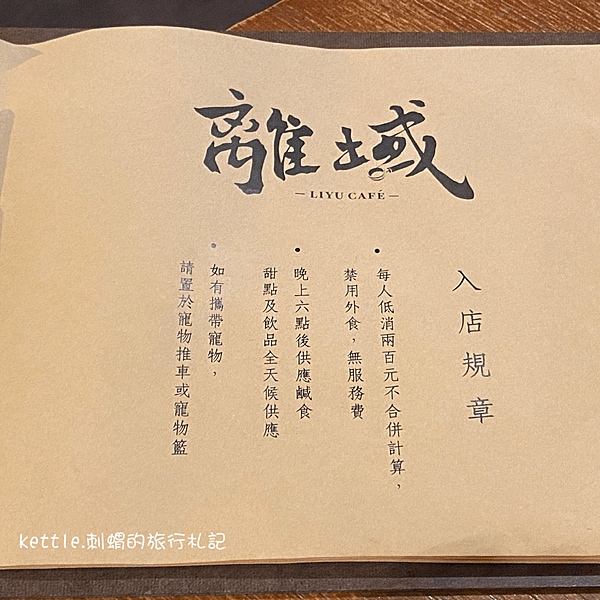 離域
— LIYU CAFÉ —
入店規章
• 每人低消兩百元不合併計算，
禁用外食，無服務費
• 晚上六點後供應鹹食
甜點及飲品全天候供應
• 如有攜帶寵物，
請置於寵物推車或寵物籃
kettle.刺蝟的旅行札記